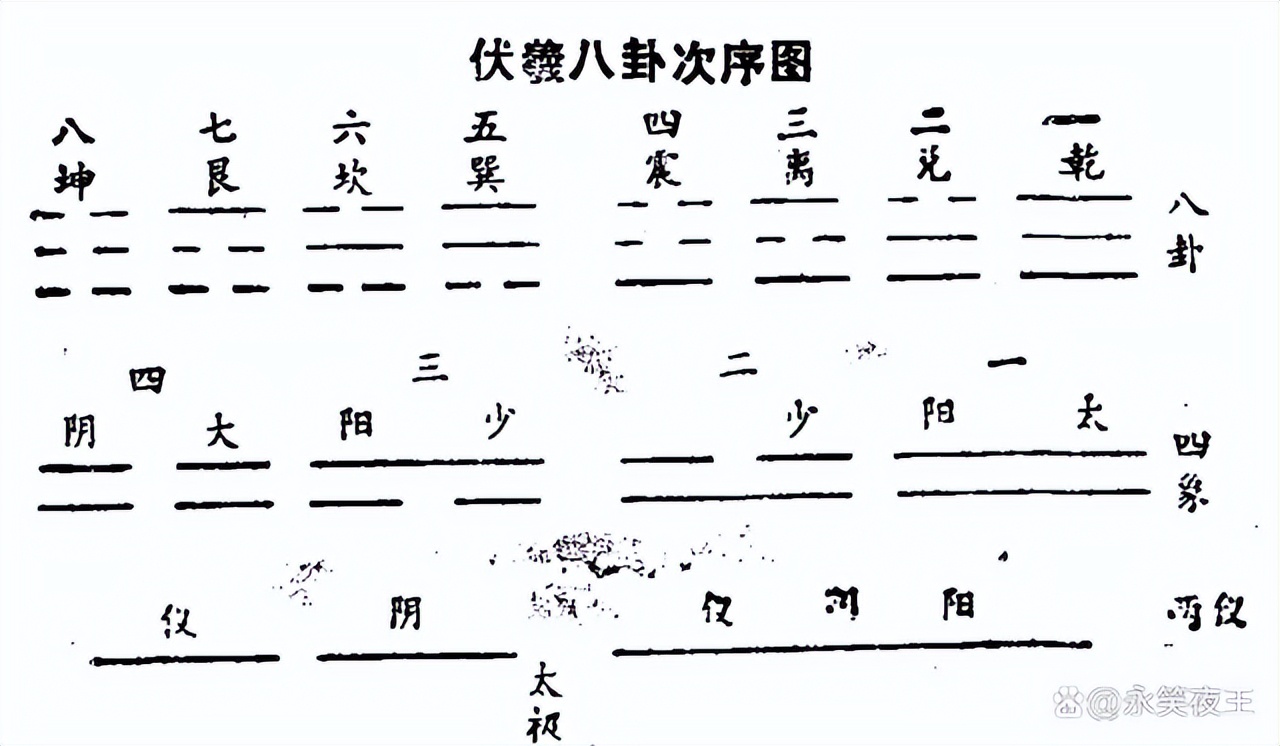 伏羲八卦次序图
八 七 六 五 四 三 二 一
坤 艮 坎 巽 震 离 兑 乾
八卦
四 三 二 一
阴 大 阳 少 少 阳 太
四象
仪 阴 仪 阳
两仪
太极
@永笑夜王